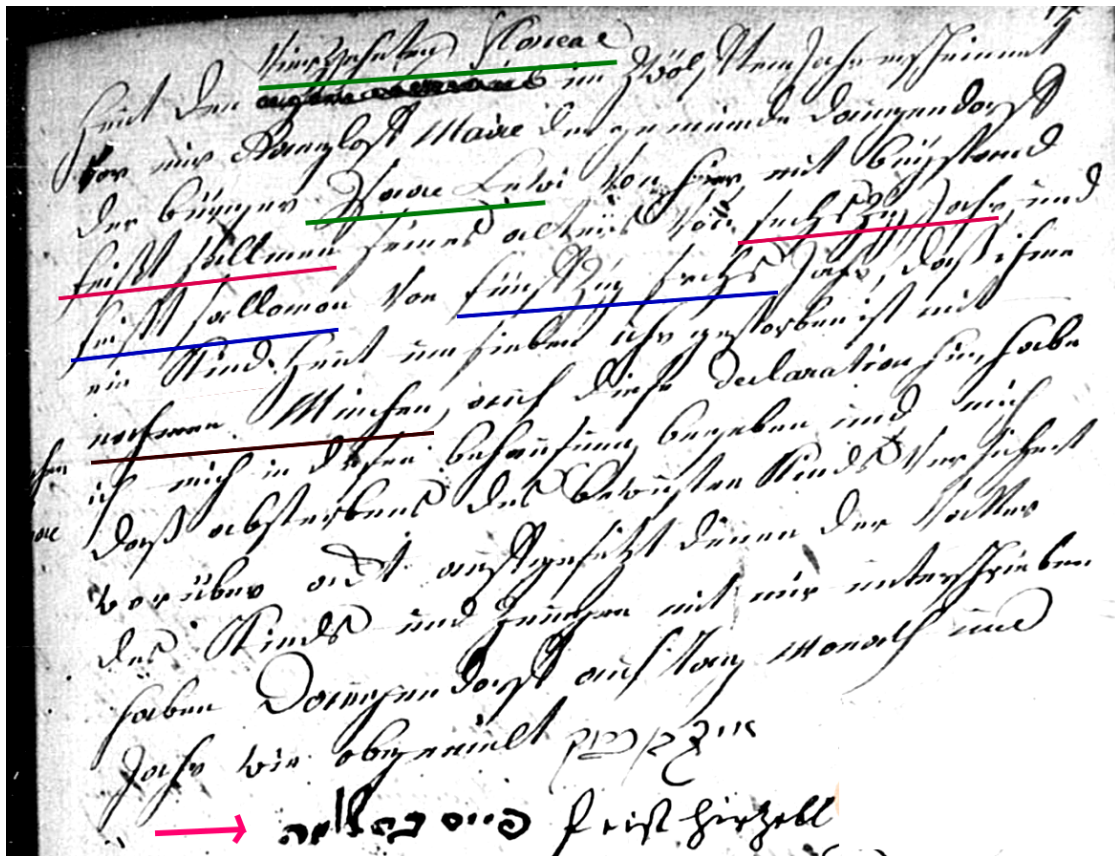 Vierzehnten Floreal
Heut den im Zwölften Jahr erscheinet
vor mir Maire der gemeinde Dauendorff
der bürger Isaac Levi von hier, mit beÿstand
feist sallmen seines alters von sechszig Jahr, und
feist sallomon von fünffzig sechs Jahr, daß ihme
ein Kind heut um sieben uhr gestorben ist mit
nahmen Minchen, auf diese Declaration hin, habe
ich mich in behausung begeben und mich
daß absterbens des bewusten Kinds versichert
vorüber act auffgesetzt denen der Vatter
des Kinds und zeugen mit mir unterschrieben
haben Dauendorff auf tag monath und
Jahr wie obgemelt
פייס feist hirtzell